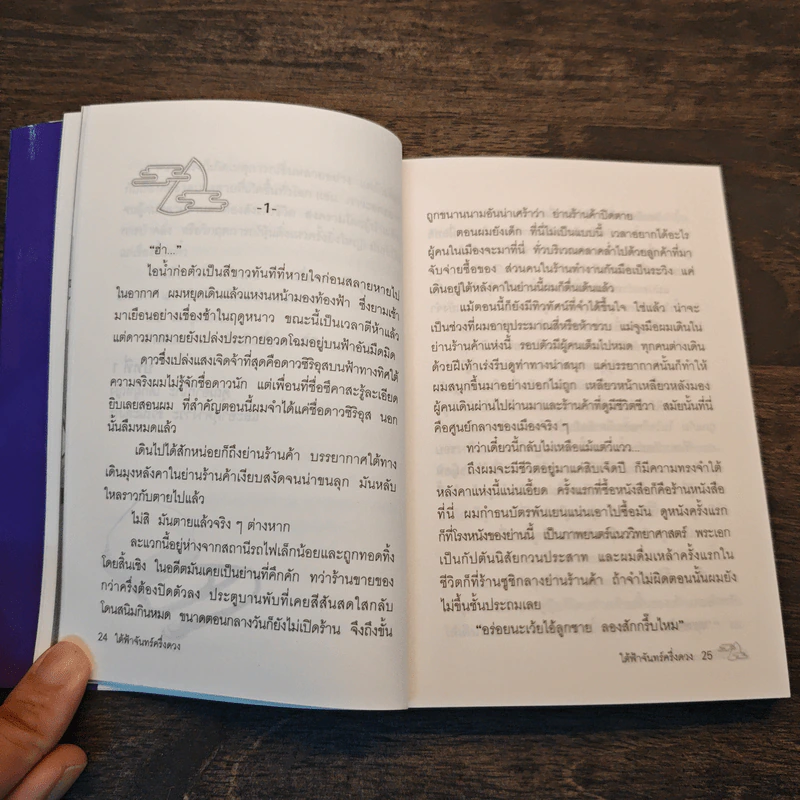 -1-
"ฮ่า..."
ไอน้ำก่อตัวเป็นสีขาวทันทีที่หายใจก่อนสลายหายไป
ในอากาศ ผมหยุดเดินแล้วแหงนหน้ามองท้องฟ้า ซึ่งยามเช้า
มาเยือนอย่างเชื่องช้าในฤดูหนาว ขณะนี้เป็นเวลาตีห้าแล้ว
แต่ดาวมากมายยังเปล่งประกายอวดโฉมอยู่บนฟ้าอันมืดมิด
ดาวซึ่งเปล่งแสงเจิดจ้าที่สุดคือดาวซิริอุสบนฟ้าทางทิศใต้
ความจริงผมไม่รู้จักชื่อดาวนัก แต่เพื่อนที่ชื่อซึคาสะรู้ละเอียด
ยิบเลยสอนผม ที่สำคัญตอนนี้ผมจำได้แค่ชื่อดาวซิริอุส นอก
นั้นลืมหมดแล้ว
เดินไปได้สักหน่อยก็ถึงย่านร้านค้า บรรยากาศใต้ทาง
เดินมุงหลังคาในย่านร้านค้าเงียบสงัดจนน่าขนลุก มันหลับ
ใหลราวกับตายไปแล้ว
ไม่สิ มันตายแล้วจริง ๆ ต่างหาก
ละแวกนี้อยู่ห่างจากสถานีรถไฟเล็กน้อยและถูกทอดทิ้ง
โดยสิ้นเชิง ในอดีตมันเคยเป็นย่านที่คึกคัก ทว่าร้านขายของ
กว่าครึ่งต้องปิดตัวลง ประตูบานพับที่เคยสีสันสดใสกลับ
โดนสนิมกินหมด ขนาดตอนกลางวันก็ยังไม่เปิดร้าน จึงถึงขั้น
24 ใต้ฟ้าจันทร์ครึ่งดวง
ถูกขนานนามอันน่าเศร้าว่า ย่านร้านค้าปิดตาย
ตอนผมยังเด็ก ที่นี่ไม่เป็นแบบนี้ เวลาอยากได้อะไร
ผู้คนในเมืองจะมาที่นี่ ทั่วบริเวณคลาคล่ำไปด้วยลูกค้าที่มา
จับจ่ายซื้อของ ส่วนคนในร้านทำงานกันมือเป็นระวิง แค่
เดินอยู่ใต้หลังคาในย่านนี้ผมก็ตื่นเต้นแล้ว
แม้ตอนนี้ก็ยังมีทิวทัศน์ที่จำได้ขึ้นใจ ใช่แล้ว น่าจะ
เป็นช่วงที่ผมอายุประมาณสี่หรือห้าขวบ แม่จูงมือผมเดินใน
ย่านร้านค้าแห่งนี้ รอบตัวมีผู้คนเต็มไปหมด ทุกคนต่างเดิน
ด้วยฝีเท้าเร่งรีบดูท่าทางน่าสนุก แค่บรรยากาศนั้นก็ทำให้
ผมสนุกขึ้นมาอย่างบอกไม่ถูก เหลียวหน้าเหลียวหลังมอง
ผู้คนเดินผ่านไปผ่านมาและร้านค้าที่ดูมีชีวิตชีวา สมัยนั้นที่นี่
คือศูนย์กลางของเมืองจริง ๆ
ทว่าเดี๋ยวนี้กลับไม่เหลือแม้แต่วี่แวว...
ถึงผมจะมีชีวิตอยู่มาแค่สิบเจ็ดปี ก็มีความทรงจำใต้
หลังคาแห่งนี้แน่นเอี้ยด ครั้งแรกที่ซื้อหนังสือก็คือร้านหนังสือ
ที่นี่ ผมกำธนบัตรพันเยนแน่นเอาไปซื้อมัน ดูหนังครั้งแรก
ก็ที่โรงหนังของย่านนี้ เป็นภาพยนตร์แนววิทยาศาสตร์ พระเอก
เป็นกัปตันนิสัยกวนประสาท และผมดื่มเหล้าครั้งแรกใน
ชีวิตก็ที่ร้านซูชิกลางย่านร้านค้า ถ้าจำไม่ผิดตอนนั้นผมยัง
ไม่ขึ้นชั้นประถมเลย
"อร่อยนะเว้ยไอ้ลูกชาย ลองสักกรึ๊บไหม"
ใต้ฟ้าจันทร์ครึ่งดวง 25